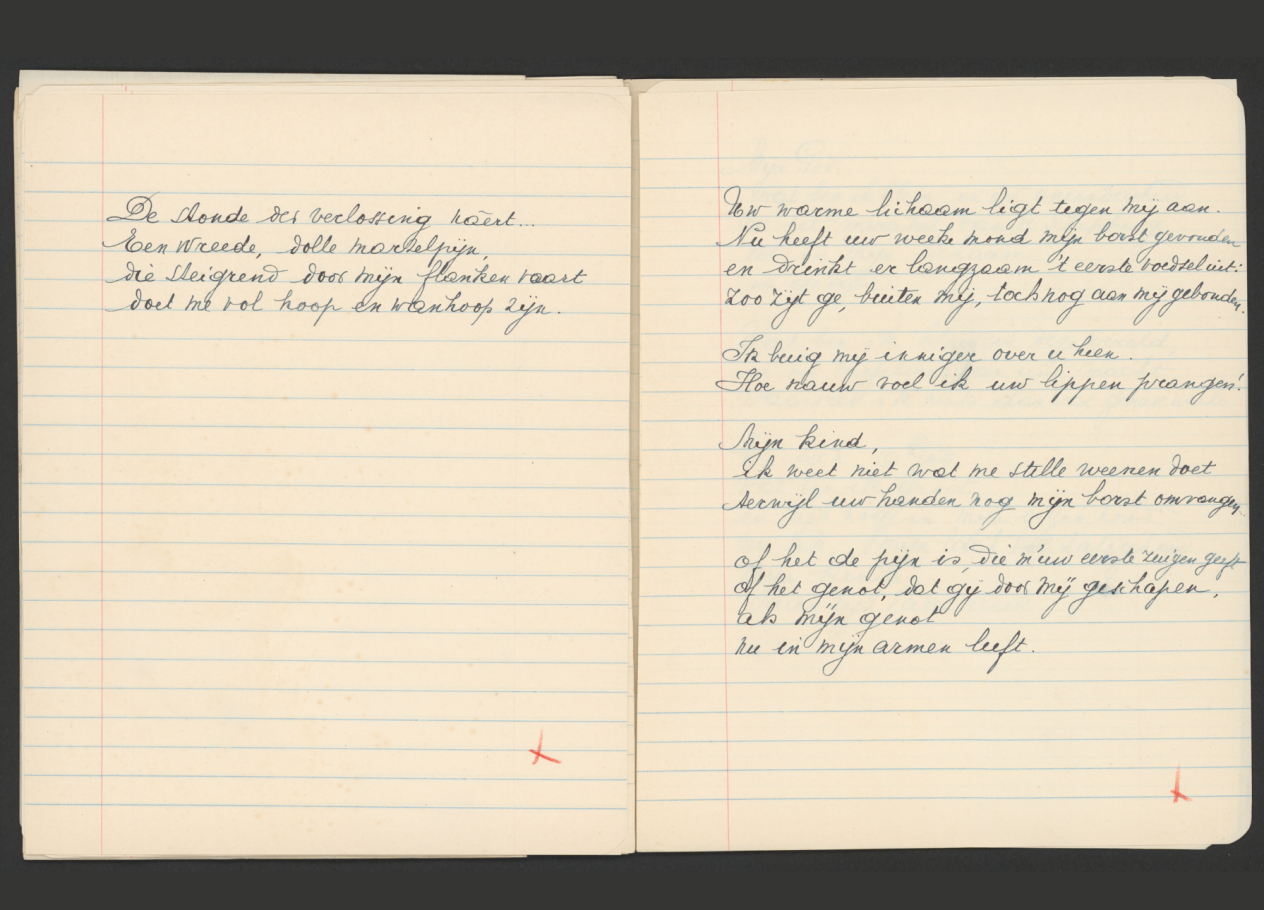 De stonde der verlossing näert...
Een wreede, dolle martelpijn,
die steigrend door mijn flanken vaart
doet me vol hoop en wanhoop zijn.
Uw warme lichaam ligt tegen mij aan.
Nu heeft uw weeke mond mijn borst gevonden
en drinkt er langzaam 't eerste voedsel uit:
zoo zijt ge, buiten mij, toch nog aan mij gebonden.
Ik buig mij inniger over u heen.
Hoe nauw voel ik uw lippen prangen!
Mijn kind,
ik weet niet wat me stille weenen doet
terwijl uw handen nog mijn borst omvangen
of het de pijn is, die m'uw eerste zuigen geeft
of het genot, dat gij door mij geschapen,
als mijn genot
nu in mijn armen leeft.